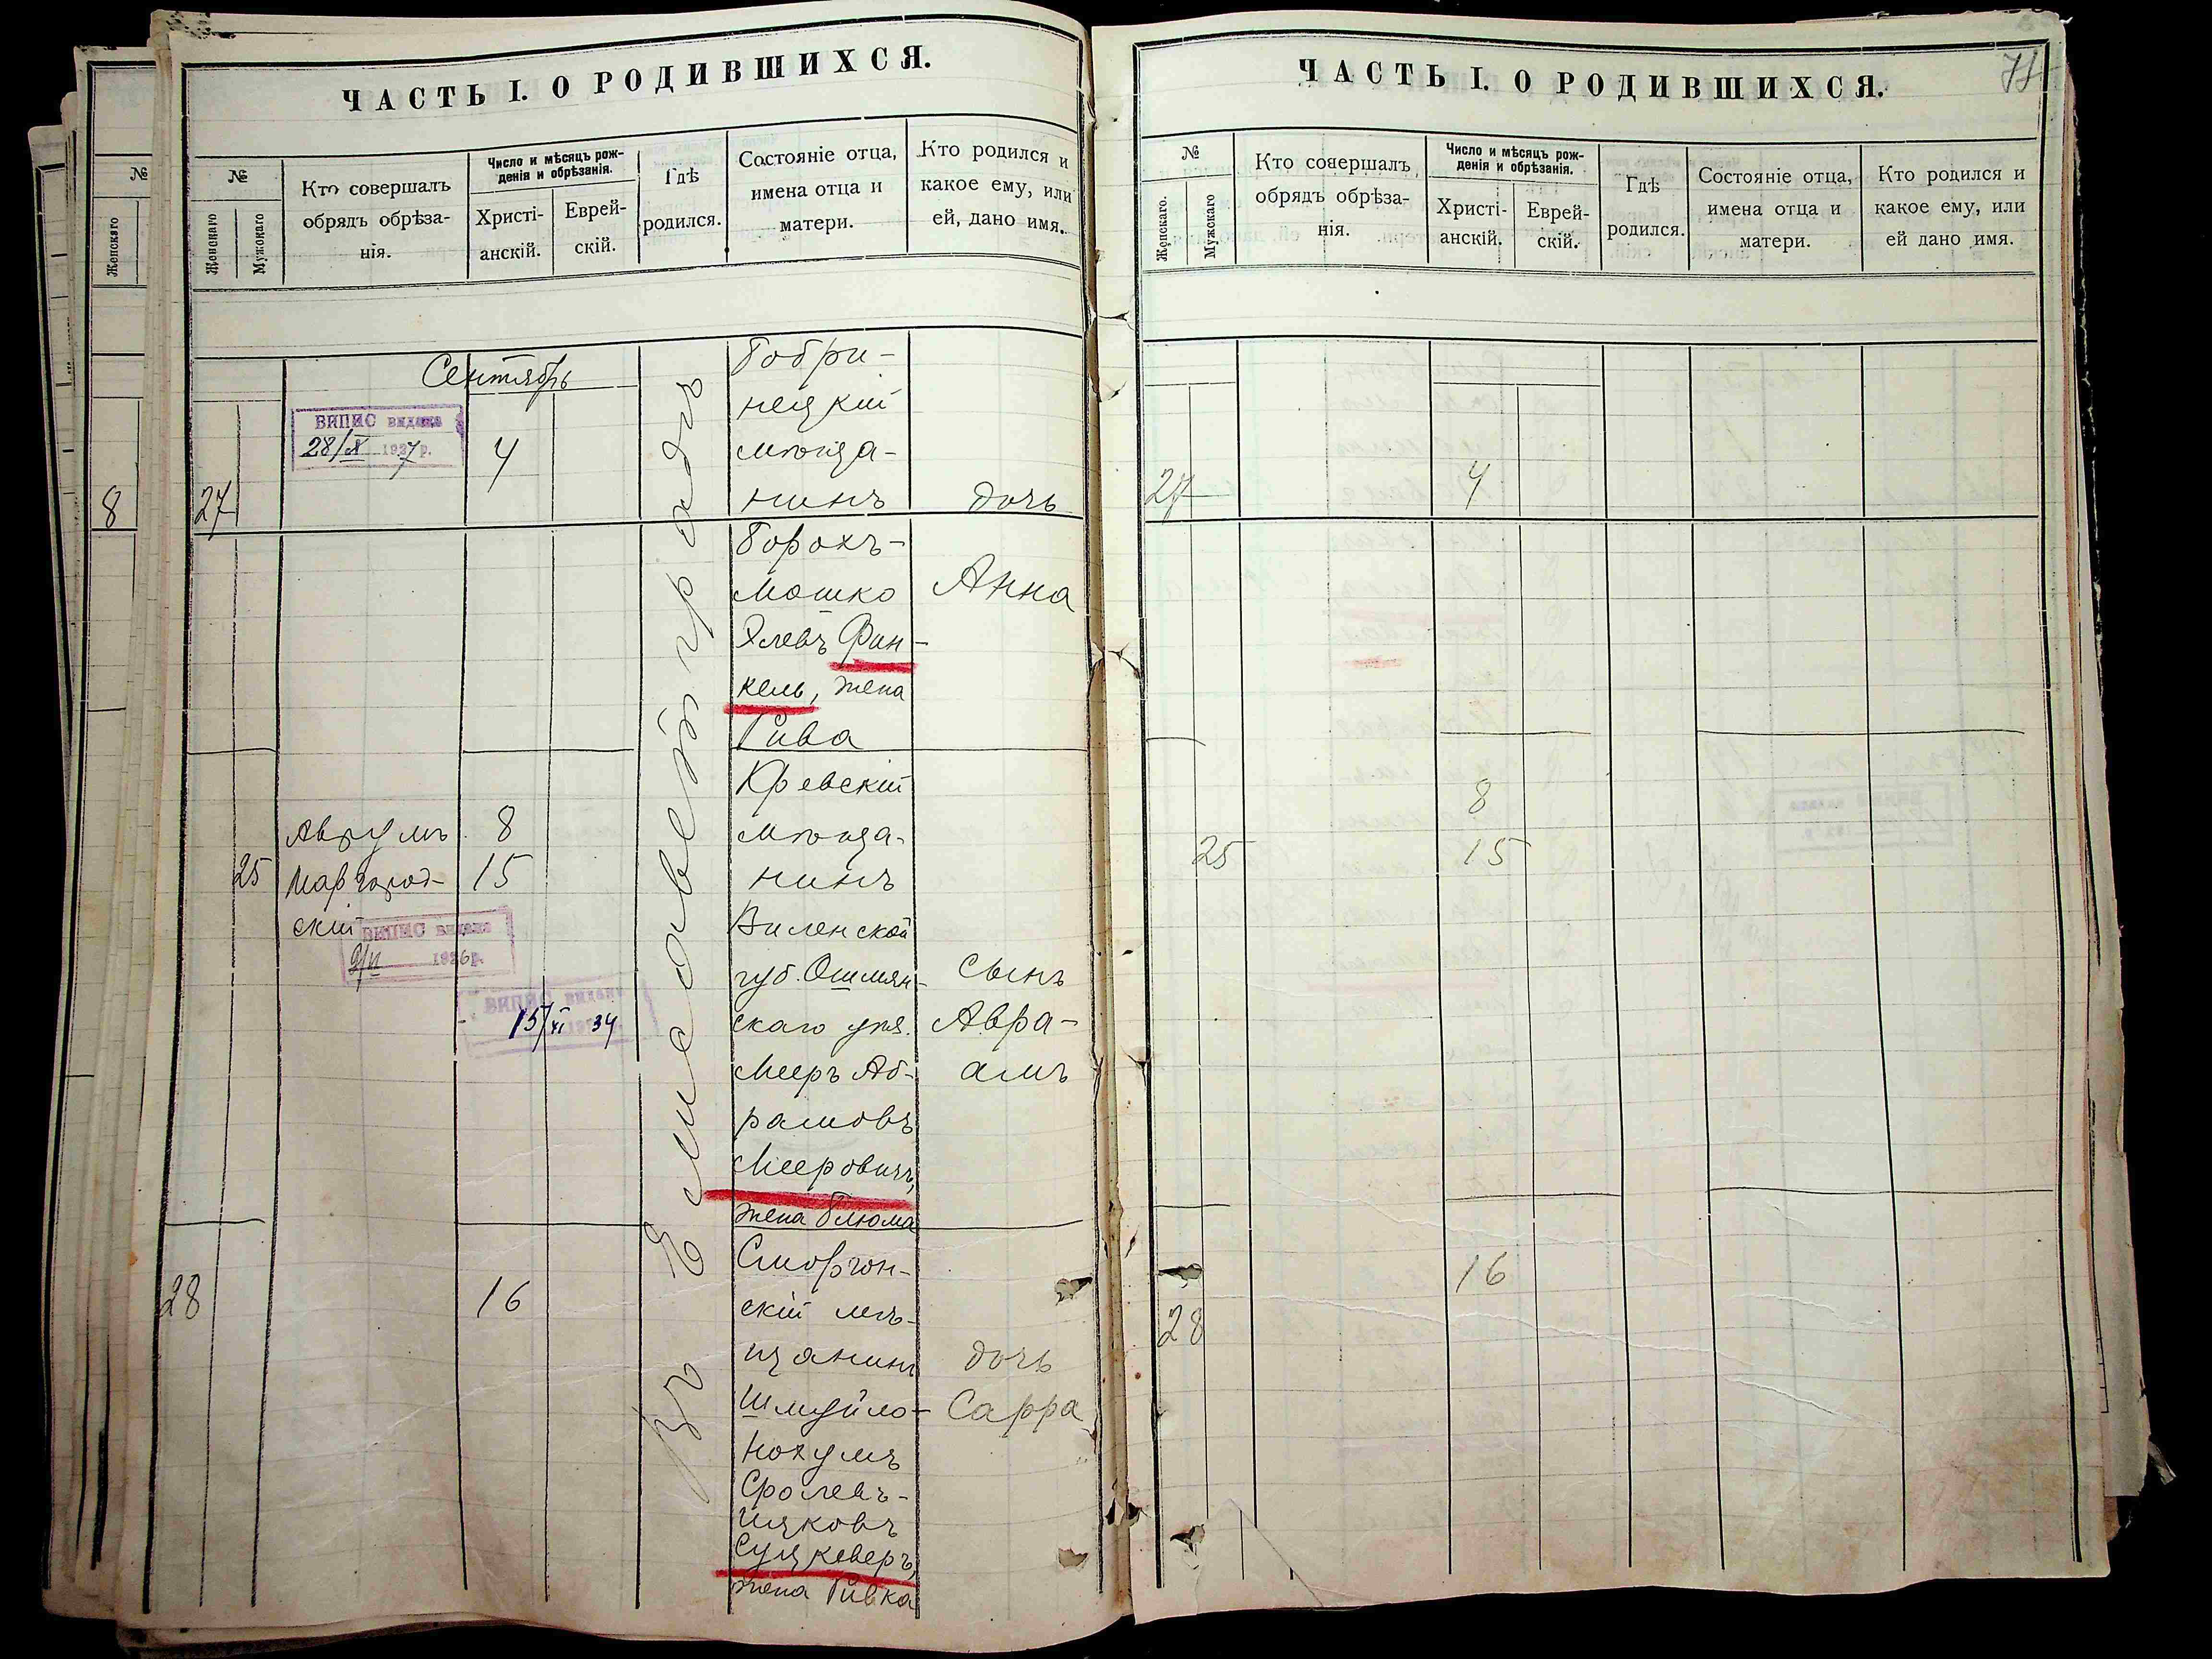 ЧАСТЬ I. О РОДИВШИХСЯ.
№
Женскаго
Мужскаго
Кто совершалъ
обрядъ обрѣза-
нія.
Число и мѣсяцъ рож-
денія и обрѣзанія.
Христі-
анскій.
Еврей-
скій.
Гдѣ
родился.
Состояніе отца,
имена отца и
матери.
Кто родился и
какое ему, или
ей, дано имя.
Сентябрь
ВИПИС видано
28/X 1927 р.
27
4
Бобри-
нецкій
мѣща-
нинъ
Борохъ-
Мошко
Элевъ Фин-
кель, жена
Рива
дочь
Анна
Въ Елисаветградѣ
25
Аврумъ
Миргород-
скій
8
15
ВИПИС видано
1926 р.
ВИПИС видано
15/XI 34
Кревскій
мѣща-
нинъ
Виленской
губ. Ошмян-
скаго уѣз.
Мееръ Аб-
рамовъ
Мееровичъ,
жена Блюма
сынъ
Авра-
амъ
28
16
Сморгон-
скій мѣ-
щанинъ
Шмуйло-
Нохумъ
Сролевъ-
Ицковъ
Суцкеверъ,
жена Ривка
дочь
Сарра
№
Женскаго
8
ЧАСТЬ I. О РОДИВШИХСЯ.
№
Женскаго.
Мужскаго
Кто совершалъ
обрядъ обрѣза-
нія.
Число и мѣсяцъ рож-
денія и обрѣзанія.
Христі-
анскій.
Еврей-
скій.
Гдѣ
родился.
Состояніе отца,
имена отца и
матери.
Кто родился и
какое ему, или
ей дано имя.
27
4
8
25
15
16
28